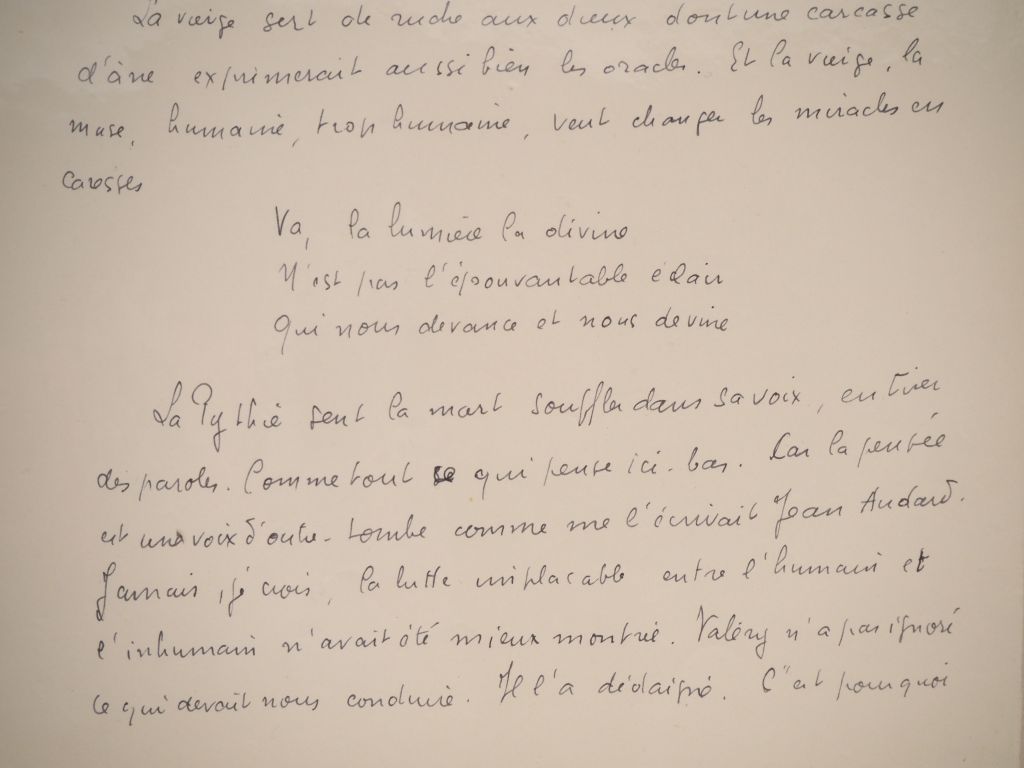 La vierge sert de ruche aux dieux dont une carcasse
d'âne exprimerait aussi bien les oracles. Et la vierge, la
muse, humaine, trop humaine, veut changer les miracles en
carosses
Va, la lumière la divine
N'est pas l'épouvantable éclair
Qui nous devance et nous devine
La Pythie sent la mort souffler dans sa voix, en tirer
des paroles. Comme tout ce qui pense ici-bas. Car la pensée
est une voix d'outre-tombe comme me l'écrivait Jean Audard.
Jamais, je crois, la lutte implacable entre l'humain et
l'inhumain n'avait été mieux montrée. Valéry n'a pas ignoré
ce qui devait nous conduire. Il l'a dédaigné. C'est pourquoi